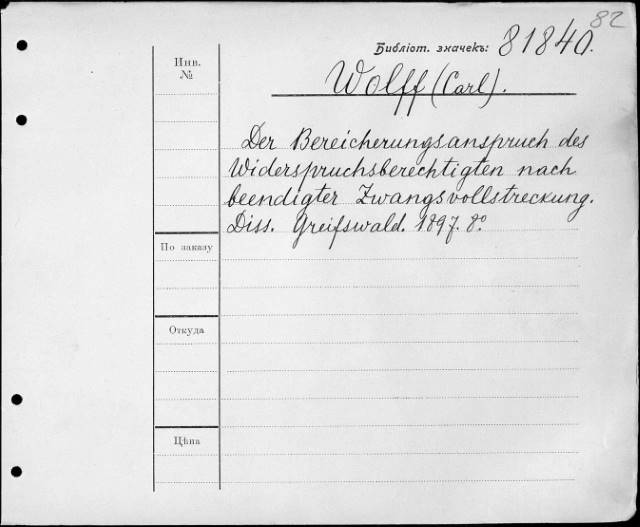 82
Библіот. значекъ: 81840.
Инв.
№
Wolff (Carl).
Der Bereicherungsanspruch des
Widerspruchsberechtigten nach
beendigter Zwangsvollstreckung.
Diss. Greifswald. 1897. 8°.
По заказу
Откуда
Цѣна